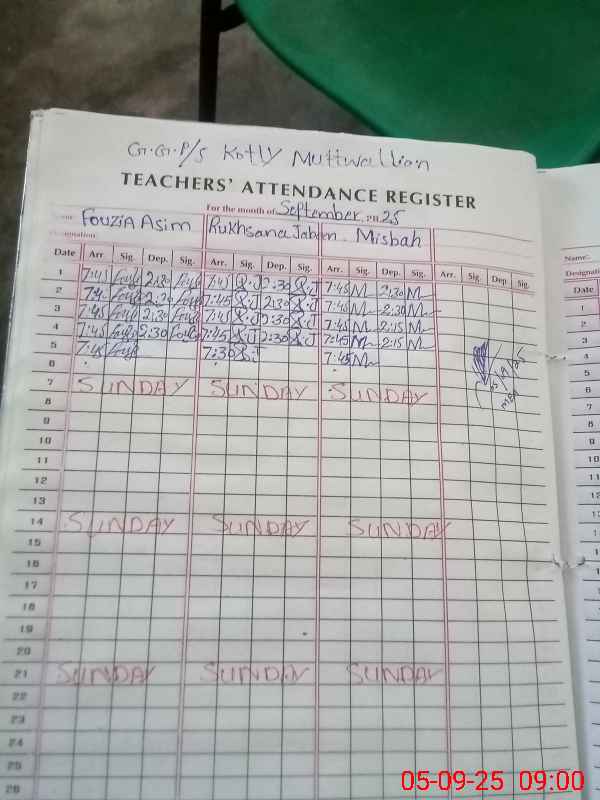 G.G.P/S Kotly Muttwallian
TEACHERS' ATTENDANCE REGISTER
For the month of September 2025
Fouzia Asim Rukhsana Jabeen Misbah Name:
Designation Designation
Date Arr. Sig. Dep. Sig. Arr. Sig. Dep. Sig. Arr. Sig. Dep. Sig. Arr. Sig. Dep. Sig. Date
1 7:45 2:30 7:45 R.J 2:30 R.J 7:45 M 2:30 M 1
2 7:45 2:30 7:45 R.J 2:30 R.J 7:45 M 2:30 M 2
3 7:45 2:30 7:45 R.J 2:30 R.J 7:45 M 2:15 M 3
4 7:45 2:30 7:45 R.J 2:30 R.J 7:45 M 2:15 M 4
5 7:45 7:30 R.J 7:45 M 5
6 6
7 SUNDAY SUNDAY SUNDAY 7
8 8
9 9
10 10
11 11
12 12
13 13
14 SUNDAY SUNDAY SUNDAY 14
15 15
16
17
18
19
20
21 SUNDAY SUNDAY SUNDAY
22
23
24
25
26
05-09-25 09:00